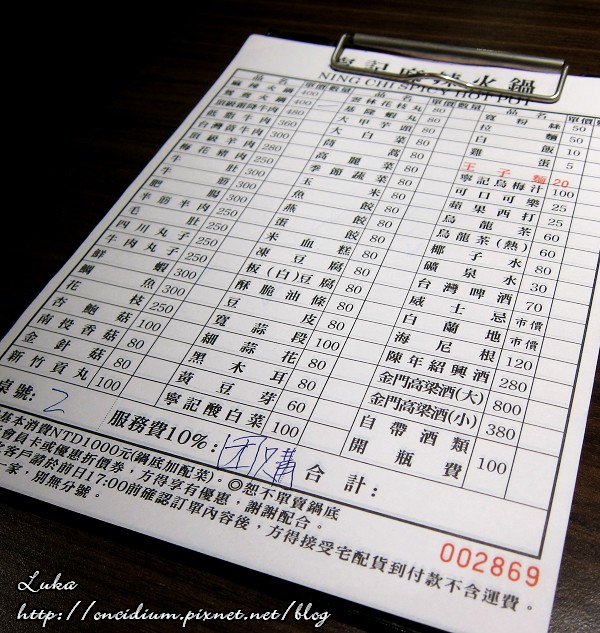 寧記麻辣火鍋
NING CHI SPICY HOT POT
品名 單價 數量 品名 單價 數量 品名 單價
麻辣火鍋 400 雲林花枝丸 80 寬粉絲 50
鴛鴦火鍋 400 基隆蝦丸 80 拉麵 50
頂級霜降牛肉 480 大甲芋頭 80 白飯 10
低脂牛肉 360 大白菜 80 雞蛋 5
台灣黃牛肉 300 茼蒿 80 王子麵 20
頂級羊肉 280 高麗菜 80 寧記烏梅汁 100
梅花豬肉 250 季節蔬菜 80 可口可樂 25
牛肚 280 玉米 80 蘋果西打 25
牛筋 300 魚餃 80 烏龍茶 60
肥腸 300 燕餃 80 烏龍茶(熱) 60
羊筋羊肉 250 蛋餃 80 椰子水 80
毛肚 280 米血糕 80 礦泉水 30
四川丸子 250 凍豆腐 80 台灣啤酒 70
牛肉丸子 250 板(白)豆腐 80 威士忌 市價
鮮蝦 300 酥脆油條 80 白蘭地 市價
鯛魚 300 豆皮 80 海尼根 120
花枝 250 寬蒜段 100 陳年紹興酒 280
杏鮑菇 100 細蒜花 80 金門高梁酒(大) 800
南投香菇 80 黑木耳 80 金門高梁酒(小) 380
金針菇 80 黃豆芽 60 自帶酒類
新竹貢丸 100 寧記酸白菜 100 開瓶費 100
桌號: 2 服務費10%: 團購 合計:
基本消費NTD1000元(鍋底加配菜)。◎恕不單賣鍋底
會員卡或優惠折價券，方得享有優惠，謝謝配合。
客戶請於前日17:00前確認訂單內容後，方得接受宅配貨到付款不含運費。
一家，別無分號。
002869
Luka
http://oncidium.pixnet.net/blog